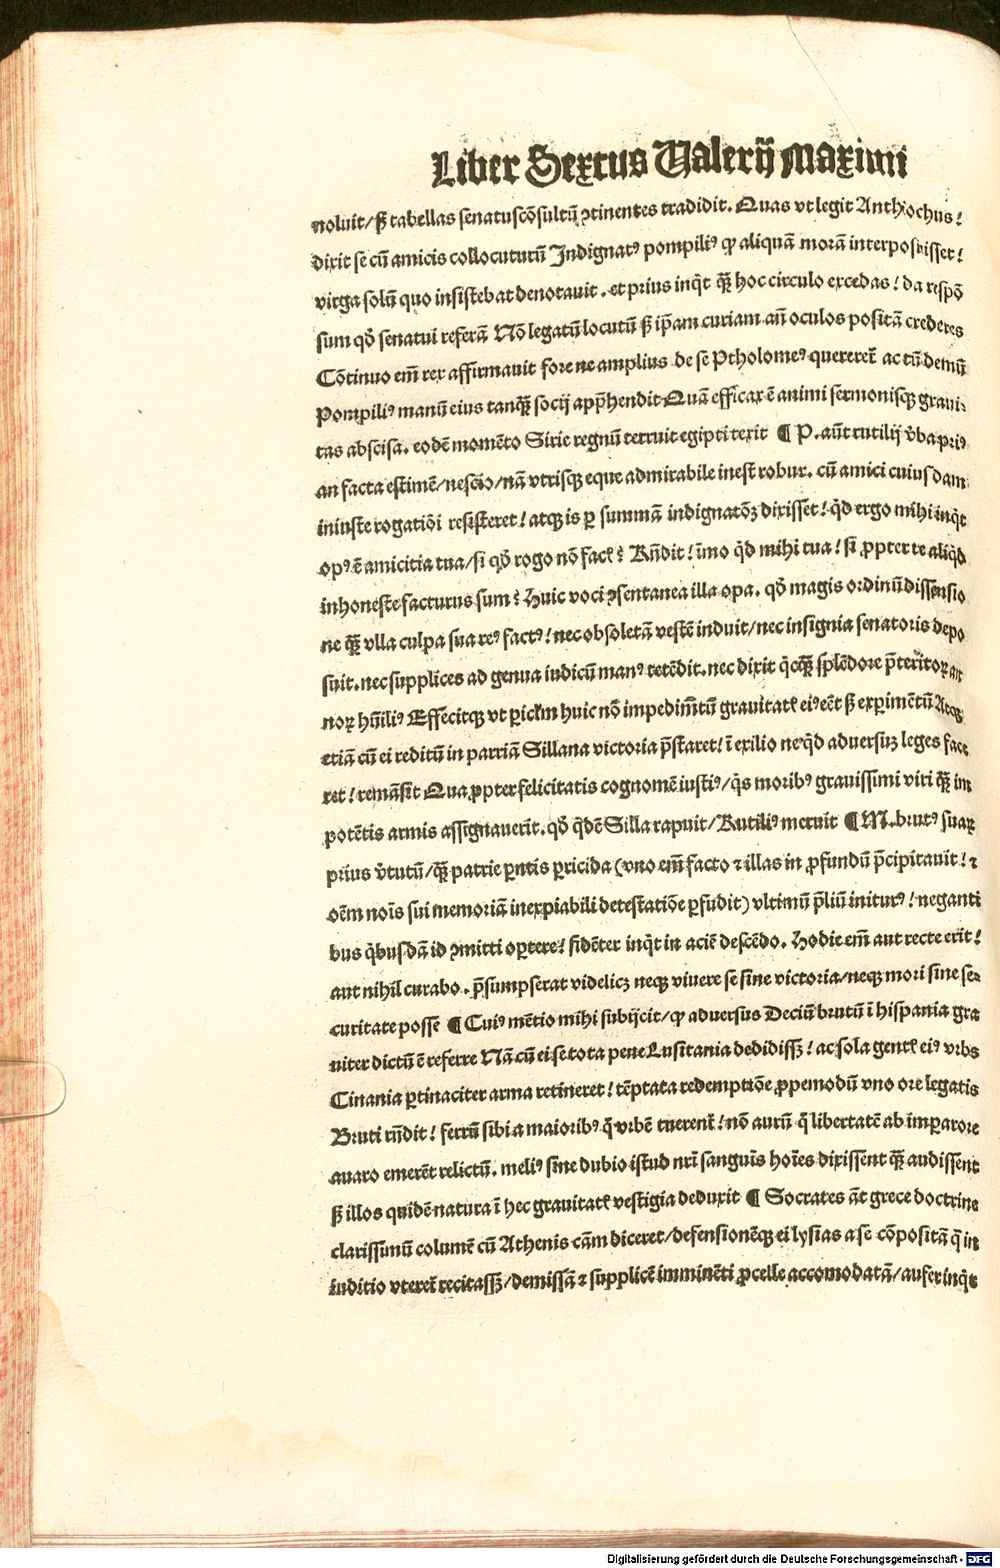 Liber Sextus Ualerij Maximi
noluit/ sꝫ tabellas senatuscōsultū ↄtinentes tradidit. Quas vt legit Anthiochus!
dixit se cū amicis collocuturū Indignatꝰ pompiliꝰ qꝙ aliquā morā interposuisset!
virga solū quo insistebat denotauit. et prius inqͥt qꝫ̄ hoc circulo excedas! da respō
sum qd̓ senatui referā Nō legatū locutū sꝫ ip̄am curiam an̄ oculos positā crederes
Cōtinuo em̄ rex affirmauit fore ne amplius de se Ptholomeꝰ quereret̄ ac tū demū
Pompiliꝰ manū eius tanqꝫ̄ socij app̄hendit Quā efficax ē animi sermonisqꝫ graui-
tas abscisa. eodē momēto Sirie regnū terruit egipti texit ¶ P. aūt rutilij v̓ba priꝰ
an facta estimē/ nescio/ nā vtrisqꝫ eque admirabile inest robur. cū amici cuiusdam
iniuste rogatiōi resisteret! atqꝫ is ꝑ summā indignatōꝫ dixisset! qͥd ergo mihi inqͥt
opꝰ ē amicitia tua/ si qd̓ rogo nō facꝭ? Rn̄dit! īmo qͥd mihi tua! si ꝓpter te aliqͥd
inhoneste facturus sum? Huic voci ↄsentanea illa opa. qd̓ magis ordinū dissensio
ne qꝫ̄ vlla culpa sua reꝰ factꝰ! nec obsoletā vestē induit/ nec insignia senatoris depo
suit. nec supplices ad genua iudicū manꝰ tetēdit. nec dixit qͥcqꝫ̄ splēdore p̄teritoꝝ an
noꝝ hūiliꝰ Effecitqꝫ vt ꝑicl̓m huic nō impedim̄tū grauitatꝭ eiꝰ eēt sꝫ exꝑimētū Atqꝫ
etiā cū ei reditū in patriā Sillana victoria p̄staret! ī exilio ne qͥd aduersuꝫ leges face
ret! remāsit Quaꝓpter felicitatis cognomē iustiꝰ/ qͥs moribꝰ grauissimi viri qꝫ̄ im
potētis armis assignauerit. qd̓ qͥdē Silla rapuit/ Rutiliꝰ meruit ¶ M. brutꝰ suaꝝ
prius v̓tutū/ qꝫ̄ patrie ꝑntis ꝑricida (vno em̄ facto ⁊ illas in ꝓfundū p̄cipitauit! ⁊
oēm noīs sui memoriā inexpiabili detestatiōe ꝑfudit) vltimū p̄liū initurꝰ! neganti
bus qͥbusdā id ↄmitti oꝑtere! fidēter inqͥt in aciē descēdo. Hodie em̄ aut recte erit!
aut nihil curabo. p̄sumpserat videlicꝫ neqꝫ viuere se sine victoria/ neqꝫ mori sine se-
curitate posse ¶ Cuiꝰ mētio mihi subijcit/ qꝙ aduersus Deciū brutū ī hispania gra
uiter dictū ē referre Nā cū ei se tota pene Lusitania dedidissꝫ! ac sola gentꝭ eiꝰ vrbs
Cinania ꝑtinaciter arma retineret! tēptata redemptiōe ꝓpemodū vno ore legatis
Bruti rn̄dit! ferrū sibi a maioribꝰ qͣ vrbē tuerent̄! nō aurū qͣ libertatē ab imꝑatore
auaro emerēt relictū. meliꝰ sine dubio istud nr̄i sanguīs hoīes dixissent qꝫ̄ audissent
sꝫ illos quidē natura ī hec grauitatꝭ vestigia deduxit ¶ Socrates aūt grece doctrine
clarissimū columē cū Athenis cām diceret/ defensionēqꝫ ei lysias a se cōpositā qͣ in
iuditio vteret̄ recitassꝫ/ demissā ⁊ supplicē imminēti ꝓcelle accomodatā/ aufer inqͥt
Digitalisierung gefördert durch die Deutsche Forschungsgemeinschaft - DFG